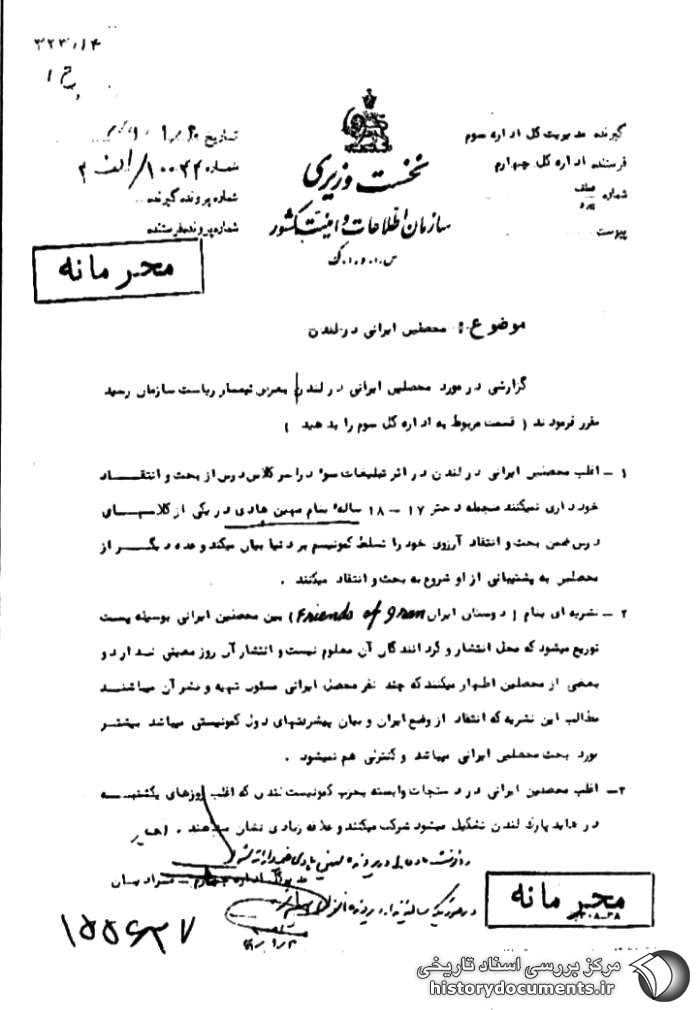 ۳۲۳/۱۴
گیرنده مدیریت کل اداره سوم
فرستنده اداره کل چهارم
شماره عطف پیرو
پیوست
نخست وزیری
سازمان اطلاعات و امنیت کشور
س.ا.و.ا.ک
تاریخ
شماره ۱۰۰۴۲/الف ۴
شماره پرونده گیرنده
شماره پرونده فرستنده
محرمانه
موضوع : محصلین ایرانی در لندن
گزارشی در مورد محصلین ایرانی در لندن بعرض تیمسار ریاست سازمان رسید
مقرر فرمودند ( قسمت مربوط به اداره کل سوم را بدهید )
۱ – اغلب محصلین ایرانی در لندن در اثر تبلیغات سوء در سر کلاس درس از بحث و انتقاد
خودداری نمیکنند منجمله دختر ۱۷ – ۱۸ ساله بنام مهین هادی در یکی از کلاسهای
درس ضمن بحث و انتقاد آرزوی خود را تسلط کمونیسم بر دنیا بیان میکند و عده دیگر از
محصلین به پشتیبانی از او شروع به بحث و انتقاد میکنند .
۲ – نشریه ای بنام ( دوستان ایران Friends of Iran) بین محصلین ایرانی بوسیله پست
توزیع میشود که محل انتشار و گردانندگان آن معلوم نیست و انتشار آن روز معینی ندارد و
بعضی از محصلین اظهار میکنند که چند نفر محصل ایرانی مسئول تهیه و نشر آن میباشند
مطالب این نشریه که انتقاد از وضع ایران و بیان پیشرفتهای دول کمونیستی میباشد بیشتر
مورد بحث محصلین ایرانی میباشد و کنترلی هم نمیشود .
۳ – اغلب محصلین ایرانی در دستجات وابسته بحزب کمونیست لندن که اغلب روزهای یکشنبه
در هاید پارک لندن تشکیل میشود شرکت میکنند و علاقه زیادی نشان میدهند .
مدیر کل اداره چهارم –
محرمانه
۱۵۵۶۲۷
مرکز بررسی اسناد تاریخی
historydocuments.ir